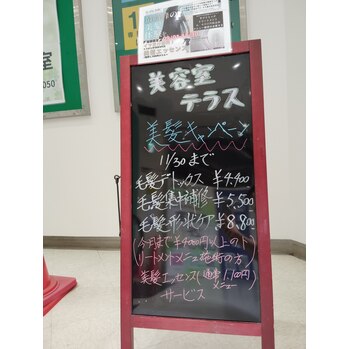 美容室
テラス
美髪キャンペーン
11/30まで
毛髪デトックス ¥4.400
毛髪集中補修 ¥5,500
毛髪形状ケア ¥8.800
(今月まで¥4000円以上のト
リートメントメニュー施術の方
美髪エッセンス(通常1,100円)
メニュー
サービス
室
050